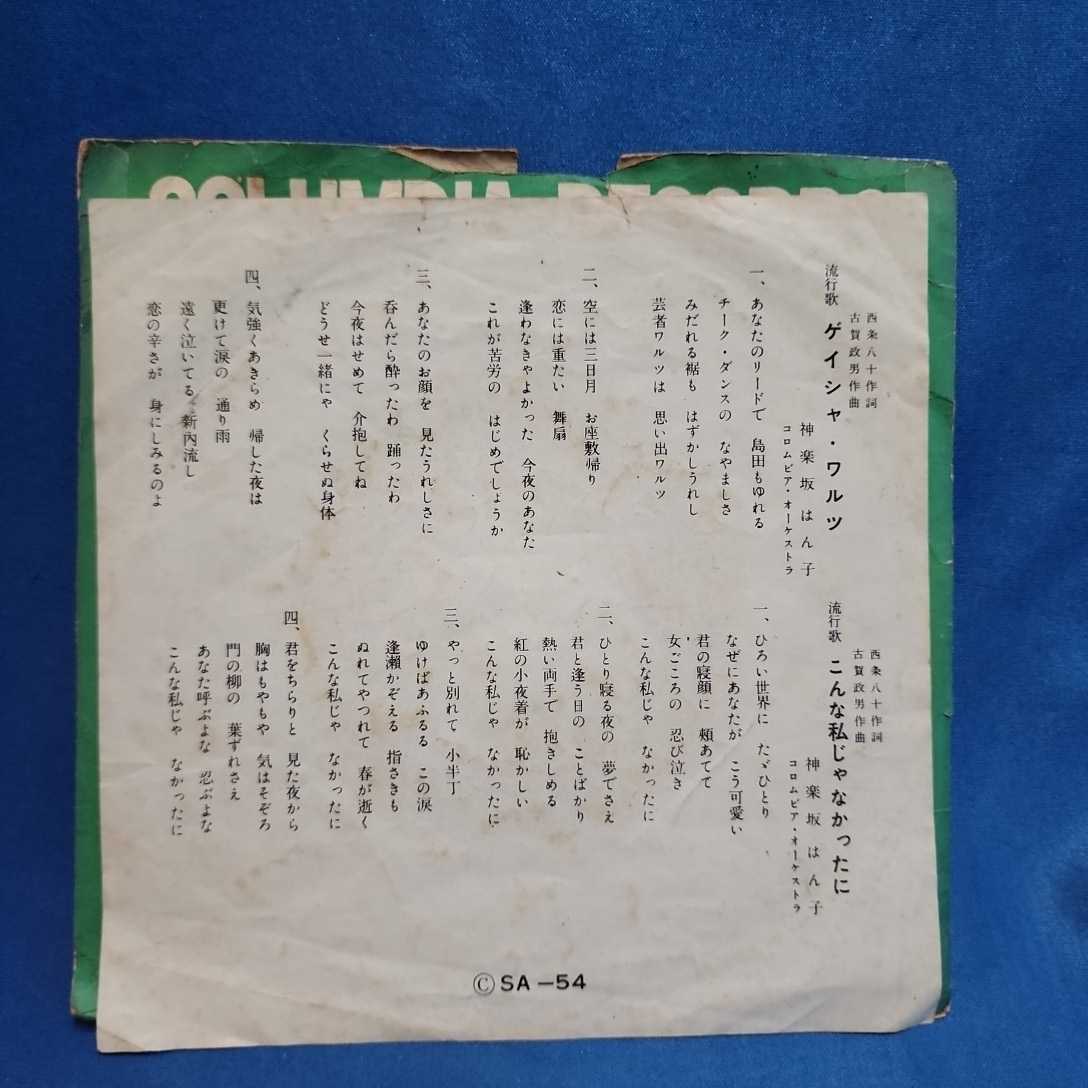 COLUMBIA RECORDS
流行歌 ゲイシャ・ワルツ
西条八十作詞
古賀政男作曲
神楽坂はん子
コロムビア・オーケストラ
一、あなたのリードで 島田もゆれる
チーク・ダンスの なやましさ
みだれる裾も はずかしうれし
芸者ワルツは 思い出ワルツ
二、空には三日月 お座敷帰り
恋には重たい 舞扇
逢わなきゃよかった 今夜のあなた
これが苦労の はじめでしょうか
三、あなたのお顔を 見たうれしさに
呑んだら酔ったわ 踊ったわ
今夜はせめて 介抱してね
どうせ一緒にゃ くらせぬ身体
四、気強くあきらめ 帰した夜は
更けて涙の 通り雨
遠く泣いてる 新内流し
恋の辛さが 身にしみるのよ
流行歌 こんな私じゃなかったに
西条八十作詞
古賀政男作曲
神楽坂はん子
コロムビア・オーケストラ
一、ひろい世界に たゞひとり
なぜにあなたが こう可愛い
君の寝顔に 頬あてて
女ごころの 忍び泣き
こんな私じゃ なかったに
二、ひとり寝る夜の 夢でさえ
君と逢う日の ことばかり
熱い両手で 抱きしめる
紅の小夜着が 恥かしい
こんな私じゃ なかったに
三、やっと別れて 小半丁
ゆけばあふるる この涙
逢瀬かぞえる 指さきも
ぬれてやつれて 春が逝く
こんな私じゃ なかったに
四、君をちらりと 見た夜から
胸はもやもや 気はそぞろ
門の柳の 葉ずれさえ
あなた呼ぶよな 忍ぶよな
こんな私じゃ なかったに
Ⓒ SA-54